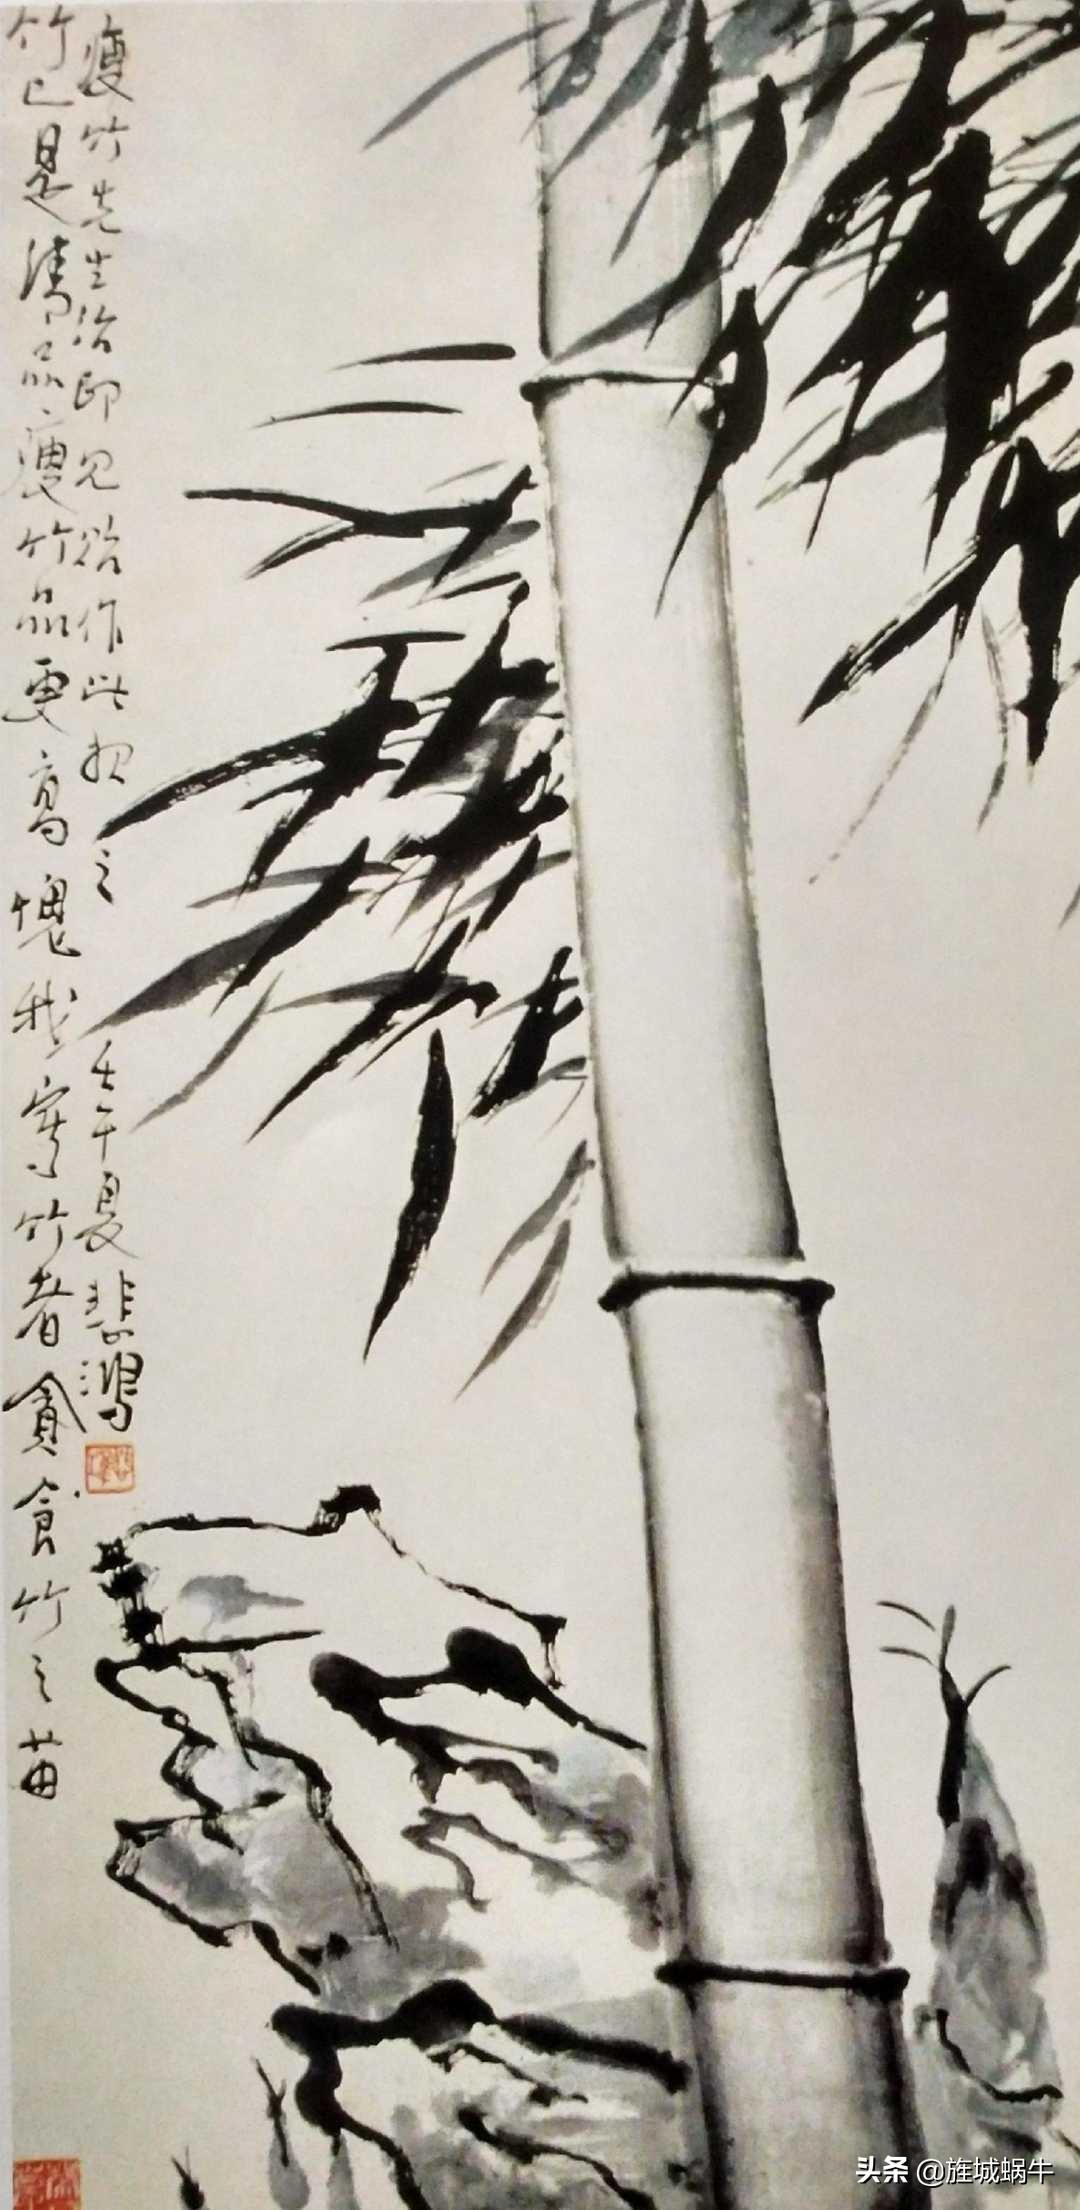 竹已是清品瘦竹品更高愧我寫竹者貪食竹之苗
瘦竹先生治印見貽作此報之
壬午夏悲鴻
头条 @旌城蜗牛